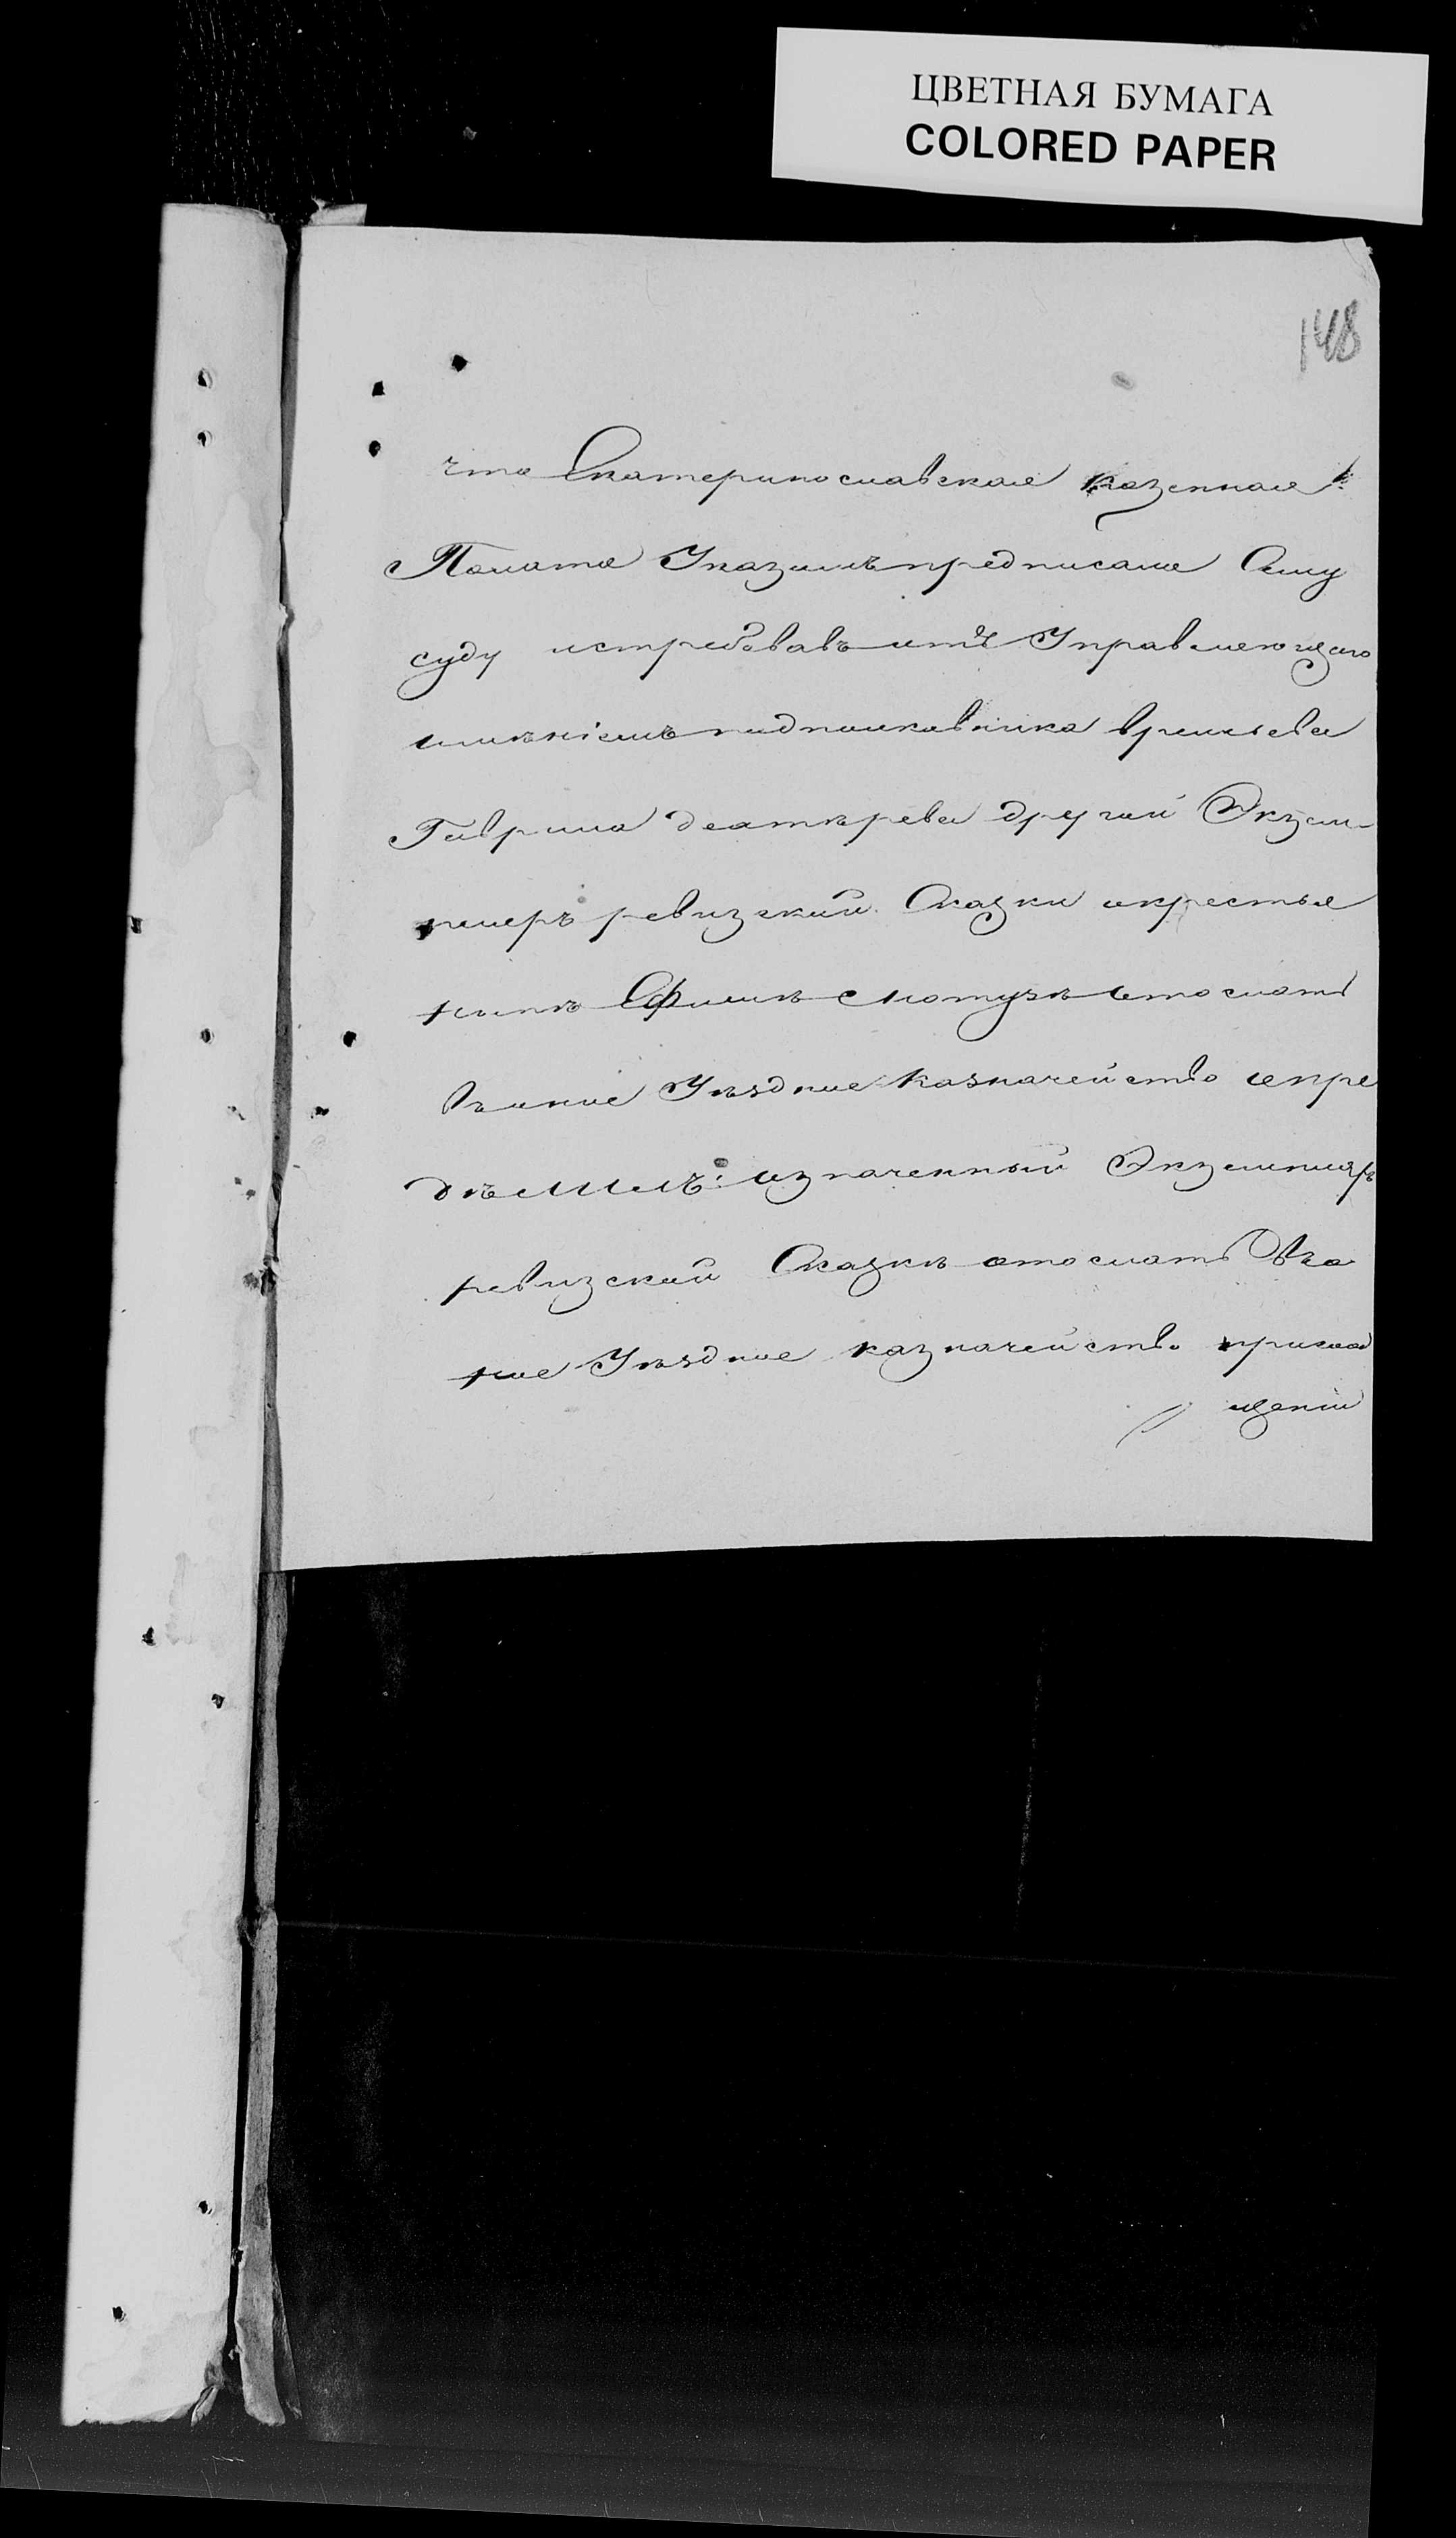 ЦВЕТНАЯ БУМАГА
COLORED PAPER
148
что Екатеринославская казенная
Полата Указомъ предписала Сему
суду истребовавъ отъ Управляющаго
имѣніемъ подполковника
Гаврила другой Экзем-
пляръ ревизской Сказки окрестья
нинѣ Ефимѣ отослать
въ Уѣздное Казначейство опре
дѣлилъ: означенный Экземпляръ
ревизской Сказкѣ отослать въ
ное Уѣздное казначейство присооб
щеніи